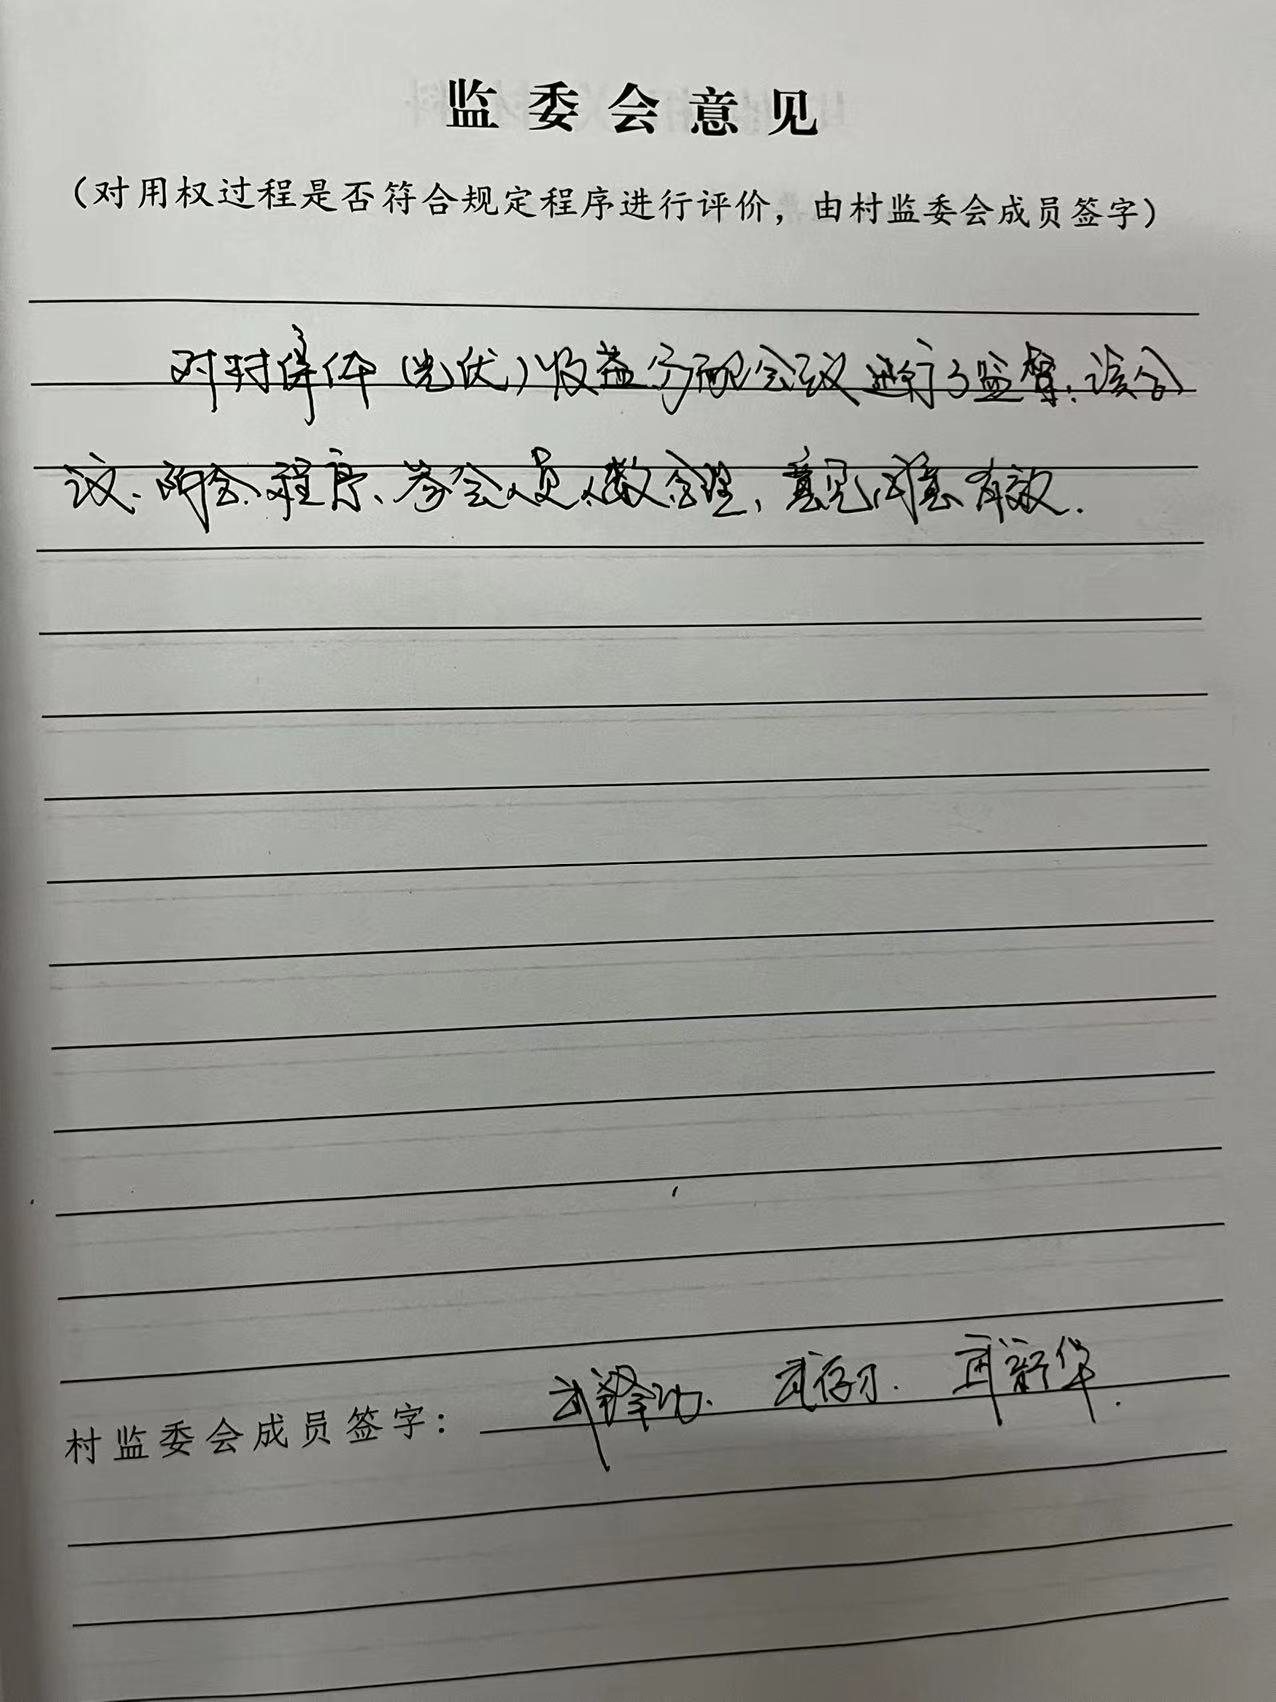 监委会意见
（对用权过程是否符合规定程序进行评价，由村监委会成员签字）
对村集体（光伏）收益分配会议进行了监督，该会
议、符合程序、参会人员人数合理，意见真实有效.
村监委会成员签字： 武锋功. 武存才. 武新华.